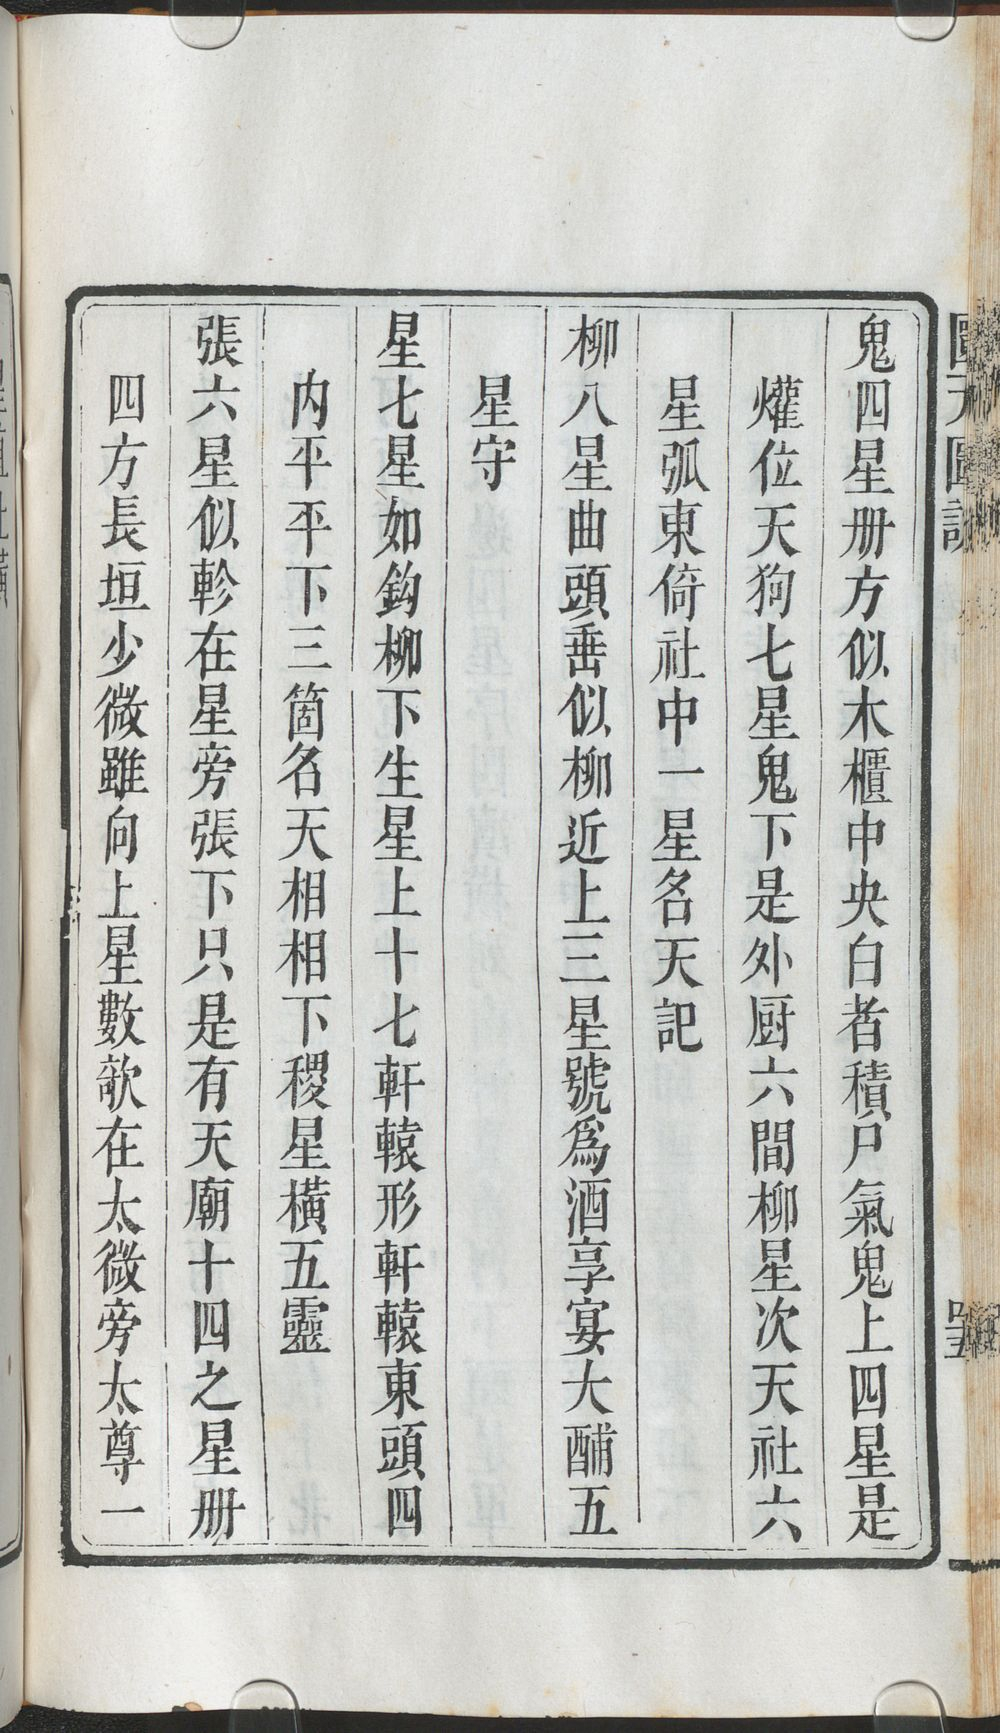 鬼四星册方似木櫃中央白者積尸氣鬼上四星是
爟位天狗七星鬼下是外厨六間柳星次天社六
星弧東倚社中一星名天記
柳八星曲頭垂似柳近上三星號爲酒享宴大酺五
星守
星七星如鈎柳下生星上十七軒轅形軒轅東頭四
内平平下三箇名天相相下稷星橫五靈
張六星似軫在星旁張下只是有天廟十四之星册
四方長垣少微雖向上星數欹在太微旁太尊一